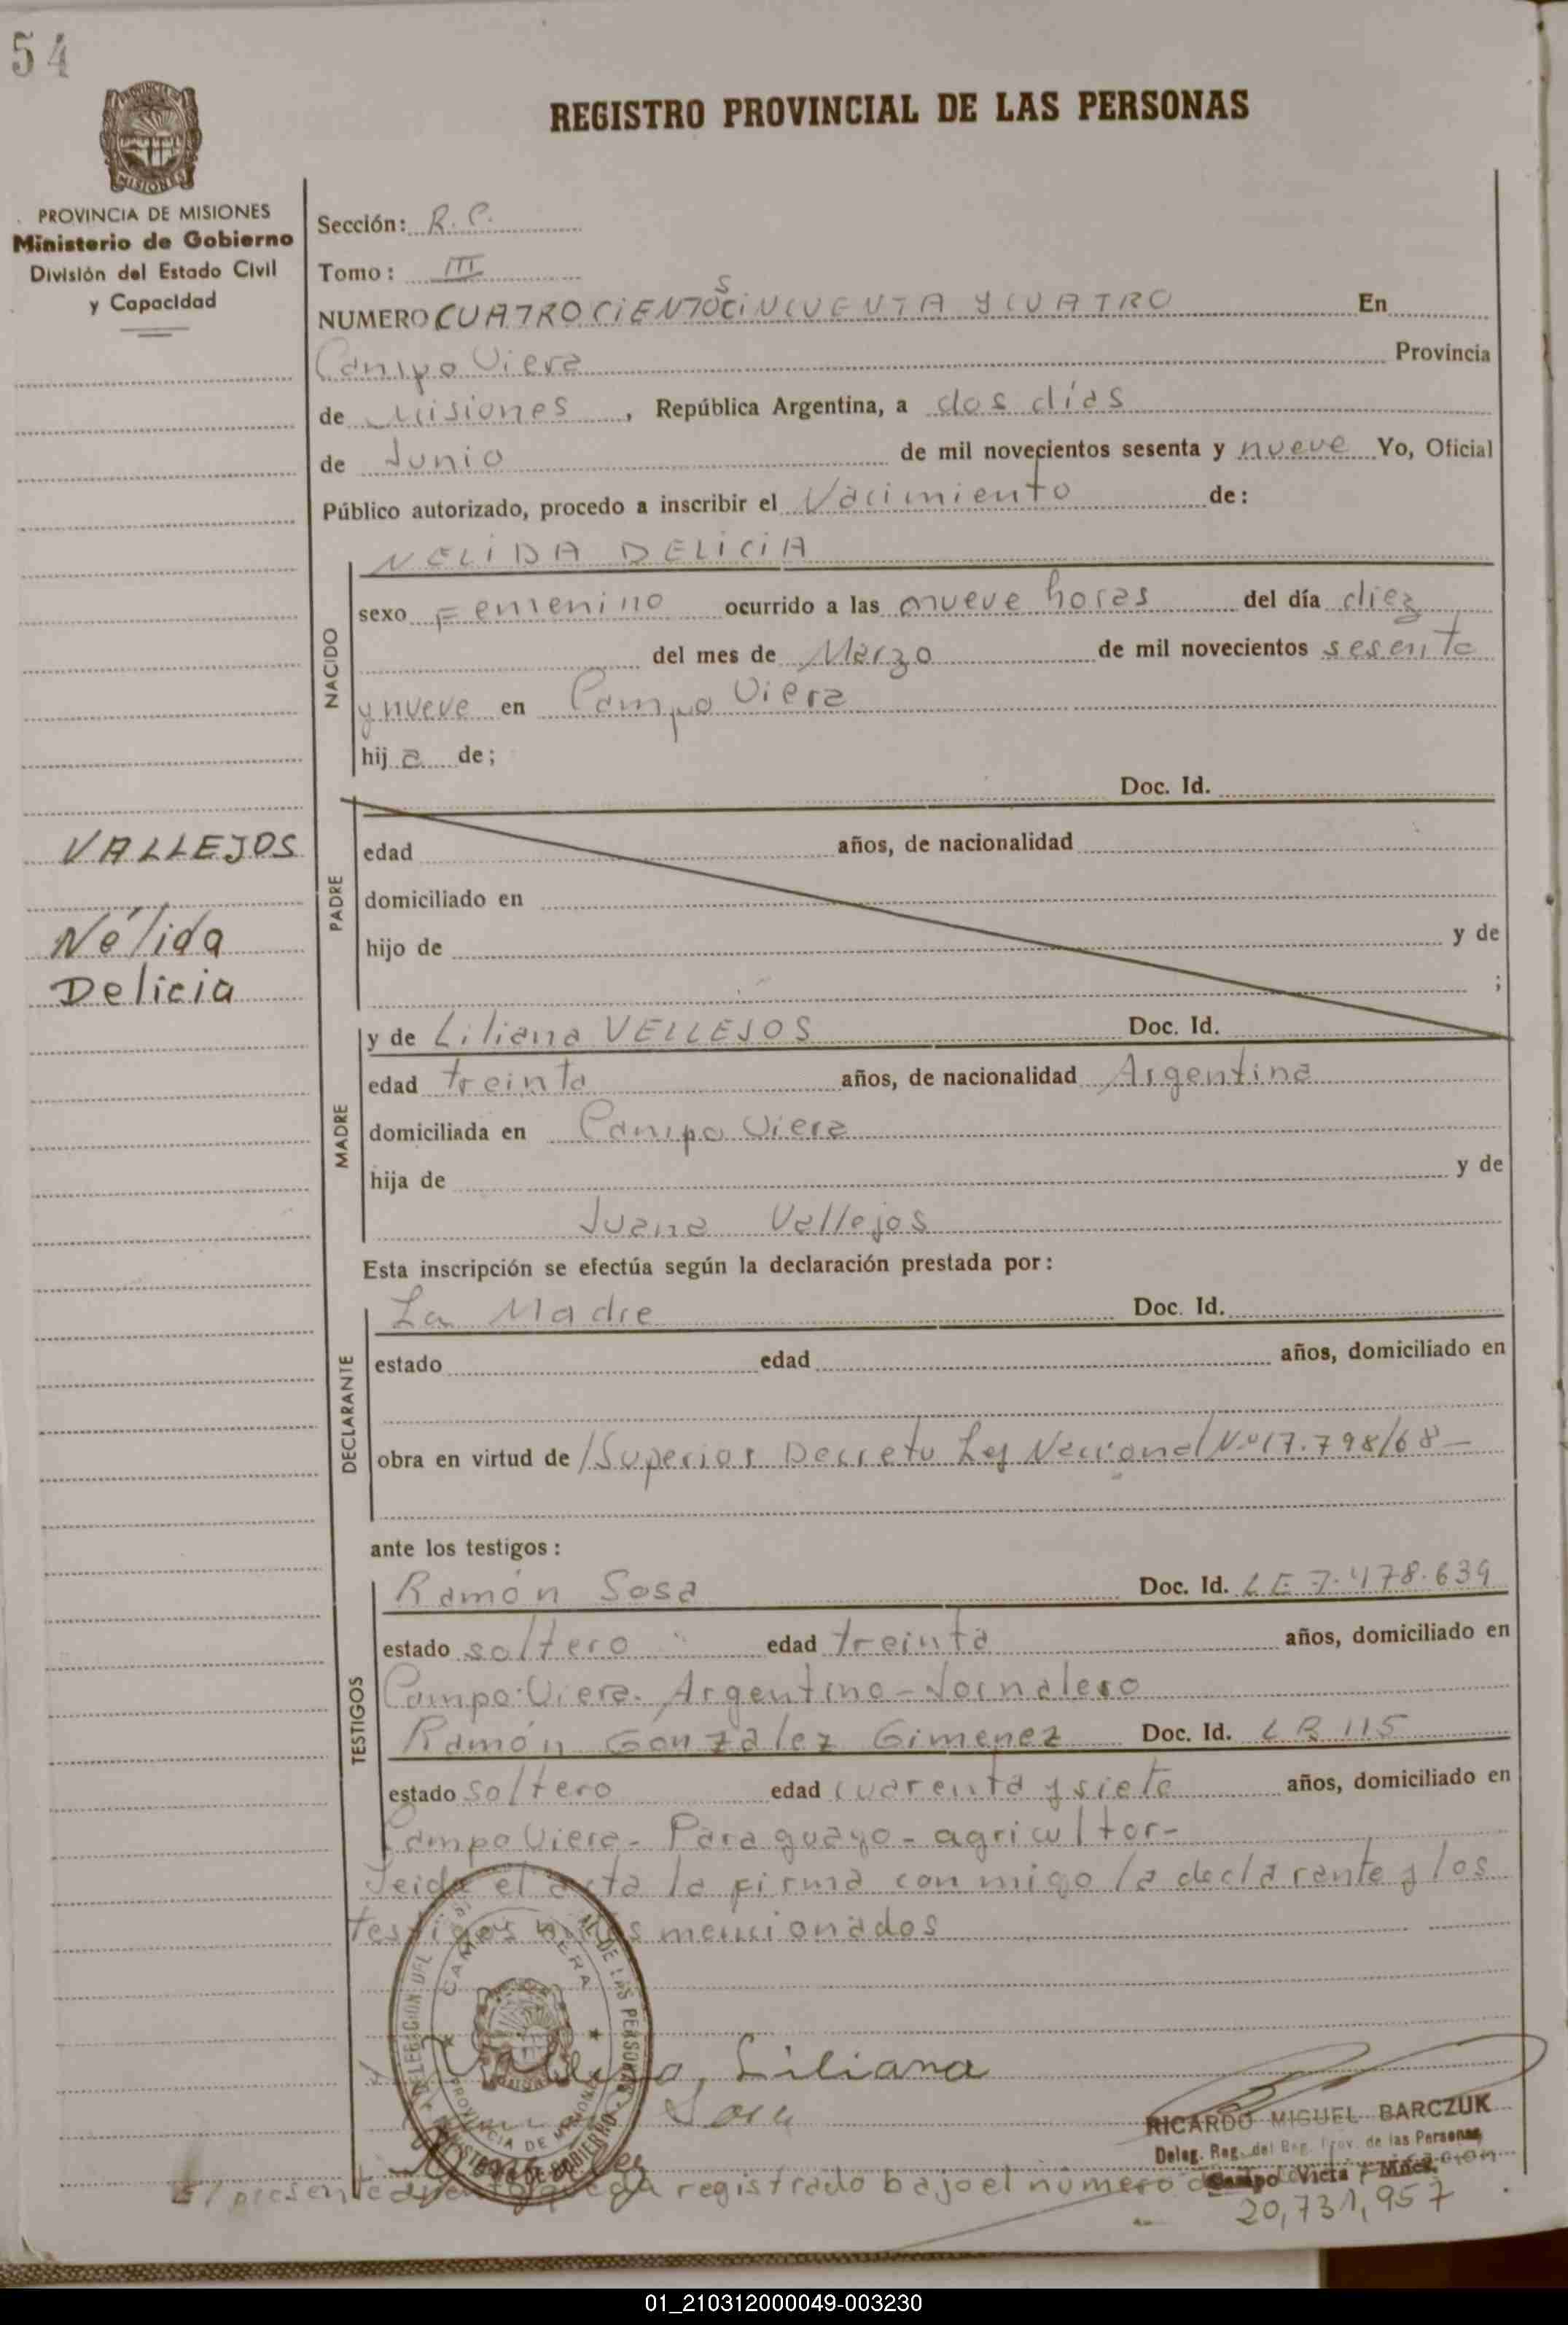 54
MISIONES
PROVINCIA DE MISIONES
Ministerio de Gobierno
División del Estado Civil
y Capacidad
REGISTRO PROVINCIAL DE LAS PERSONAS
Sección: R. C.
Tomo: III
NUMERO CUATROCIENTOS CINCUENTA Y CUATRO En
Campo Viera Provincia
de Misiones, República Argentina, a dos días
de Junio de mil novecientos sesenta y nueve Yo, Oficial
Público autorizado, procedo a inscribir el Nacimiento de:
NELIDA DELICIA
NACIDO
sexo Femenino ocurrido a las nueve horas del día diez
del mes de Marzo de mil novecientos sesenta
y nueve en Campo Viera
hija de;
Doc. Id.
VALLEJOS
Nélida
Delicia
PADRE
edad años, de nacionalidad
domiciliado en
hijo de y de
;
MADRE
y de Liliana VELLEJOS Doc. Id.
edad treinta años, de nacionalidad Argentina
domiciliada en Campo Viera
hija de y de
Juana Vallejos
Esta inscripción se efectúa según la declaración prestada por:
DECLARANTE
La Madre Doc. Id.
estado edad años, domiciliado en
obra en virtud de /Superior Decreto Ley Nacional Nº 17.798/68-
ante los testigos:
TESTIGOS
Ramón Sosa Doc. Id. LE 7.478.639
estado soltero edad treinta años, domiciliado en
Campo Viera. Argentino-Jornalero
Ramón González Gimenez Doc. Id. LB 115
estado soltero edad cuarenta y siete años, domiciliado en
Campo Viera- Paraguayo- agricultor-
Leida el acta la firma con migo la declarante y los
testigos mencionados
DELEGACION DEL DE LAS PERSONAS
CAMPO VIERA
PROVINCIA DE MISIONES
MINISTERIO DE GOBIERNO
Liliana
Sosa
RICARDO MIGUEL BARCZUK
Deleg. Reg. del Reg. Prov. de las Personas
Campo Viera - Mnes.
El presente queda registrado bajo el número
20,731,957
01_210312000049-003230